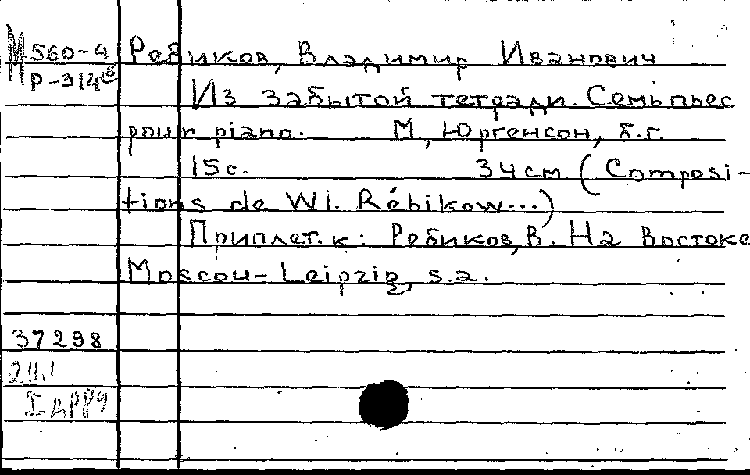 М 560-4
Р-314е
Ребиков, Владимир Иванович
Из забытой тетради. Семь пьес
pour piano. М., Юргенсон, б.г.
15с. 34см (Composi-
tions de Wl. Rébikow...)
Приплет. к: Ребиков, В. На Востоке
Moscou-Leipzig, s.a.
37298